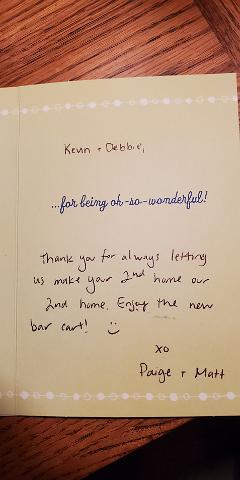 Kevin + Debbie,
...for being oh-so-wonderful!
Thank you for always letting
us make your 2nd home our
2nd home. Enjoy the new
bar cart! :)
XO
Paige + Matt